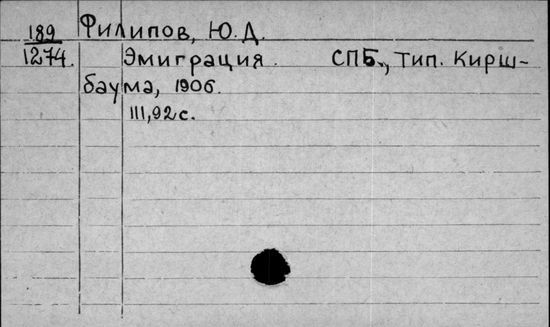 189 Филипов, Ю. Д.
1274. Эмиграция. СПБ., Тип. Кирш-
баума, 1906.
III, 92 с.